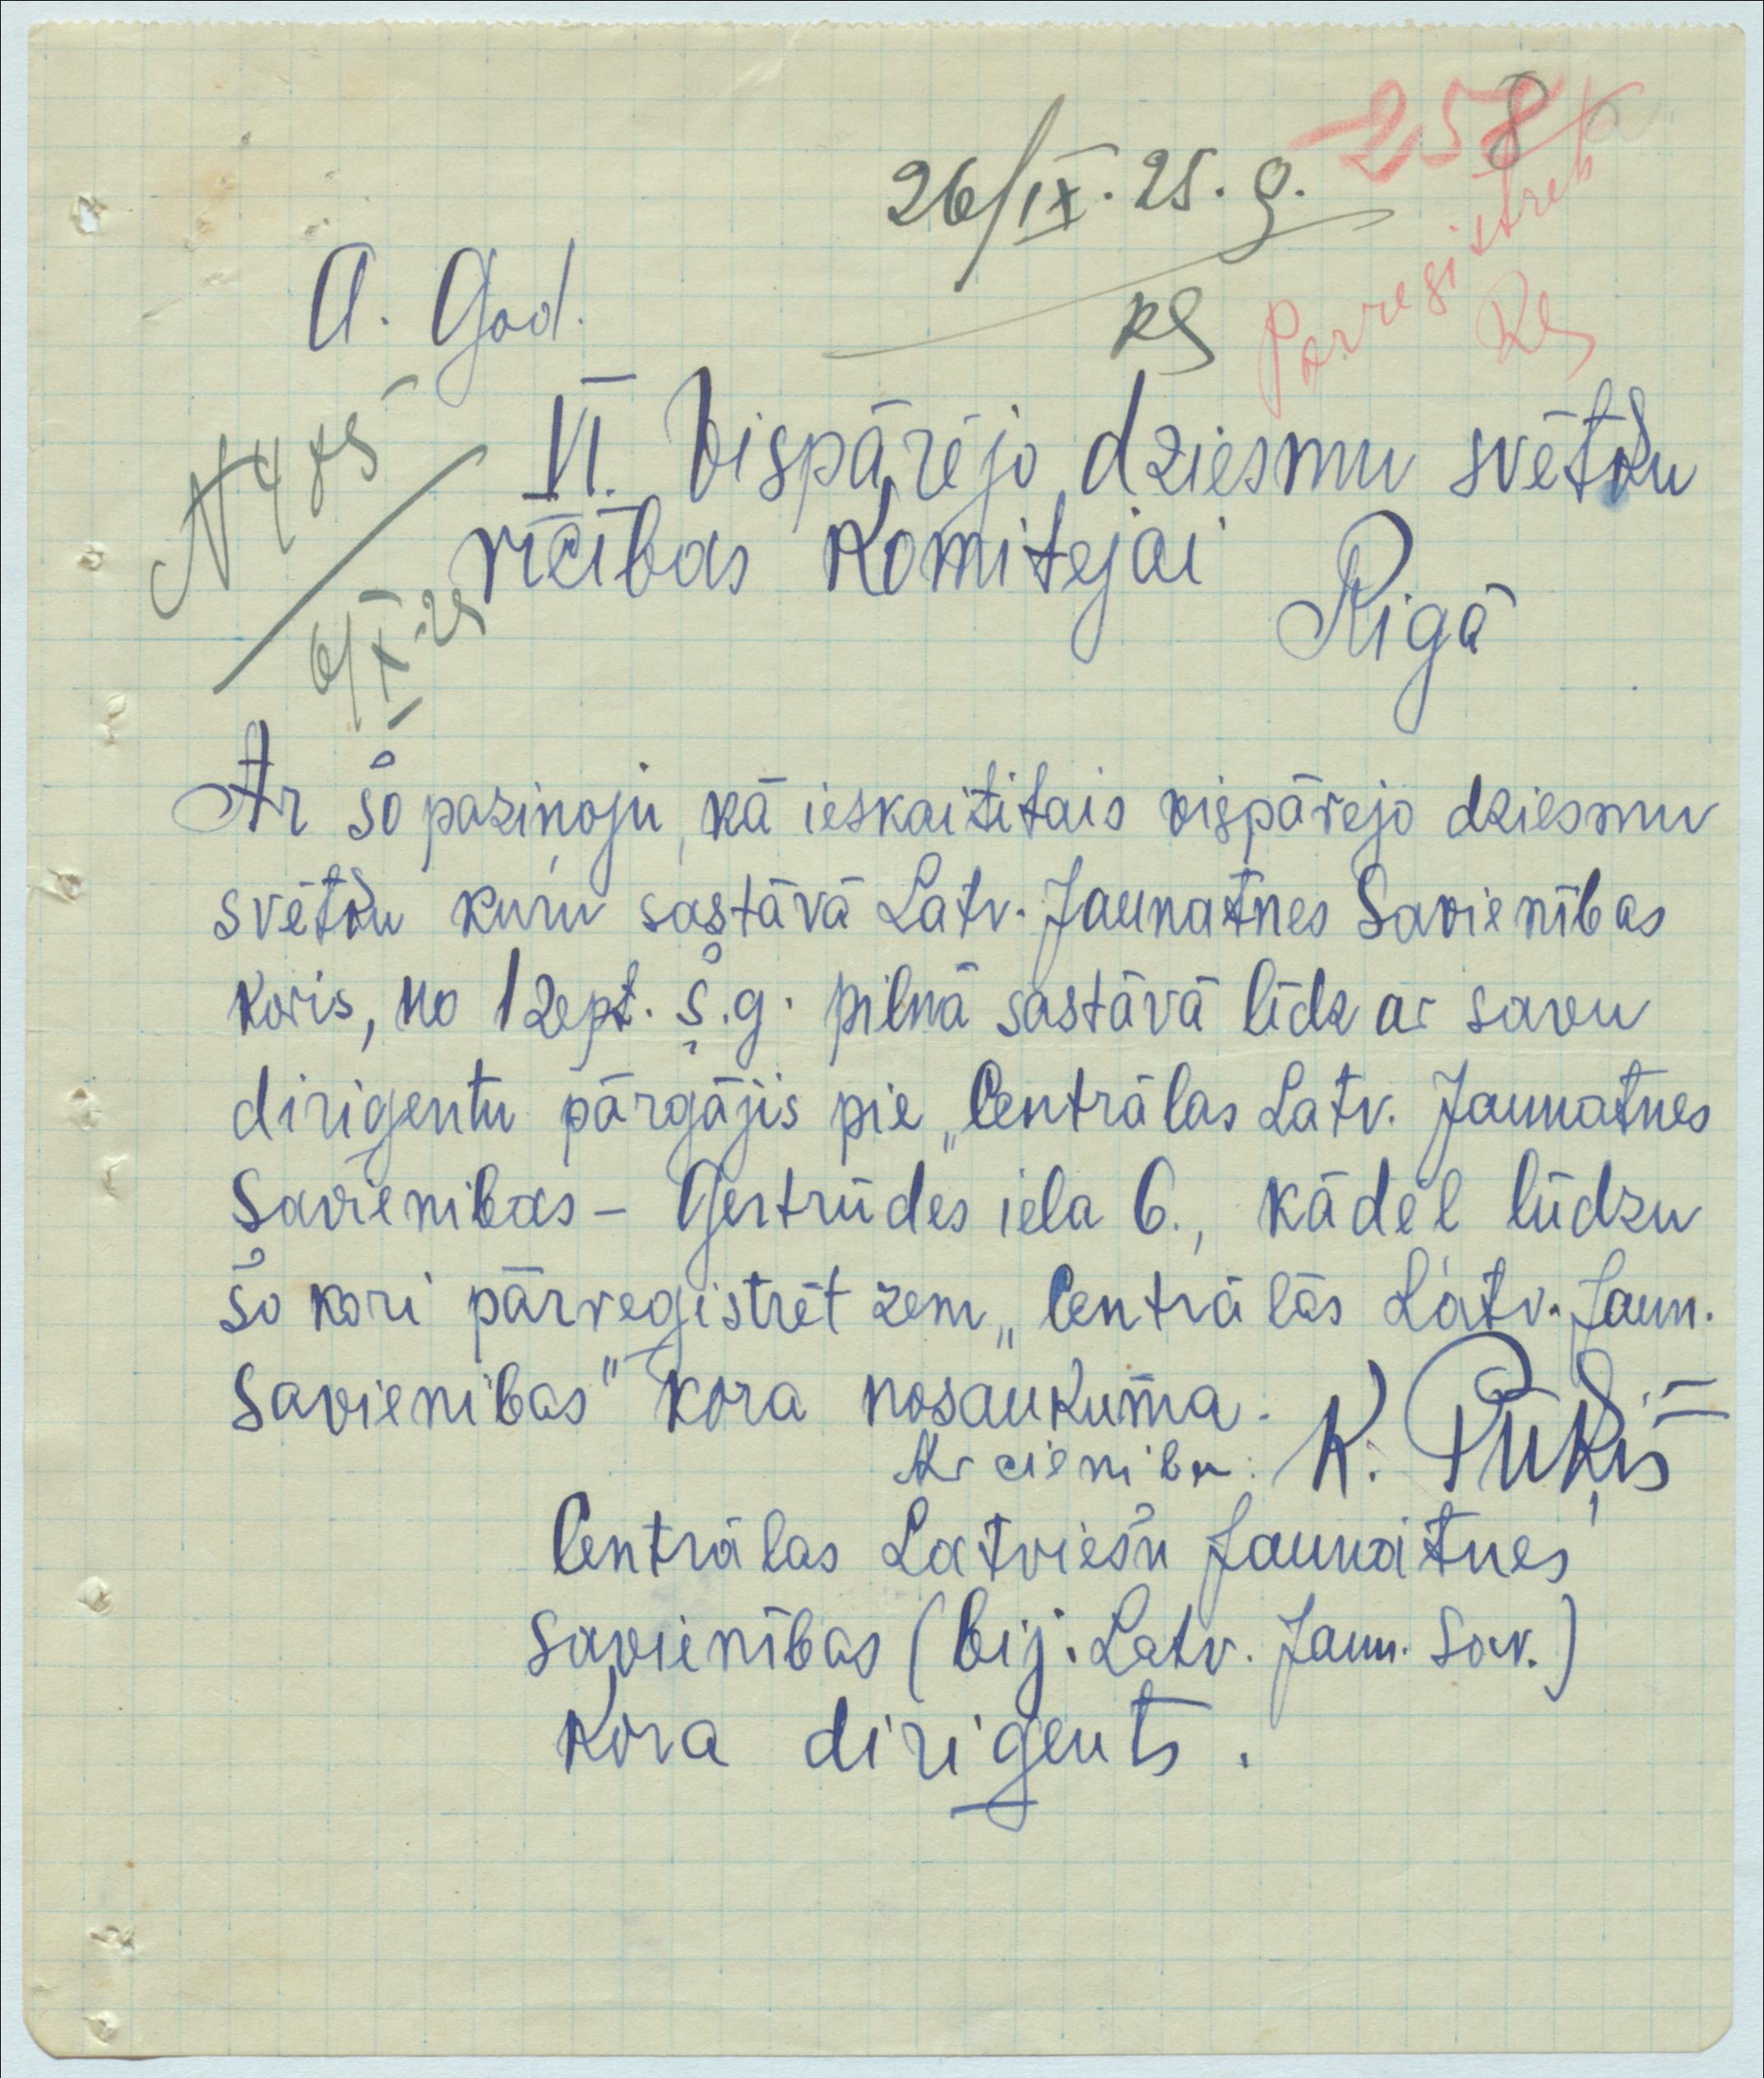 258
26/IX. 25. g.
Pārreģistrēts
A. God.
N 485
6/X.25
VI. Vispārējo dziesmu svētku
rīcības Komitejai
Rīgā
Ar šo paziņoju, kā ieskaitītais vispārejo dziesmu
svētku kuŗu sastāvā Latv. Jaunatnes Savienības
koris, no 1 sept. š.g. pilnā sastāvā līdz ar savu
diriģentu pārgājis pie „Centrālas Latv. Jaunatnes
Savienibas – Ģertrūdes iela 6., kādēl lūdzu
šo kori pārreģistrēt zem „Centrālās Latv. Jaun.
Savienibas" kora nosaukuma.
Ar cienibu: K. Pūķis
Centrālas Latviešu Jaunatnes
Savienības (bij. Latv. Jaun. Sav.)
Kora diriģents.